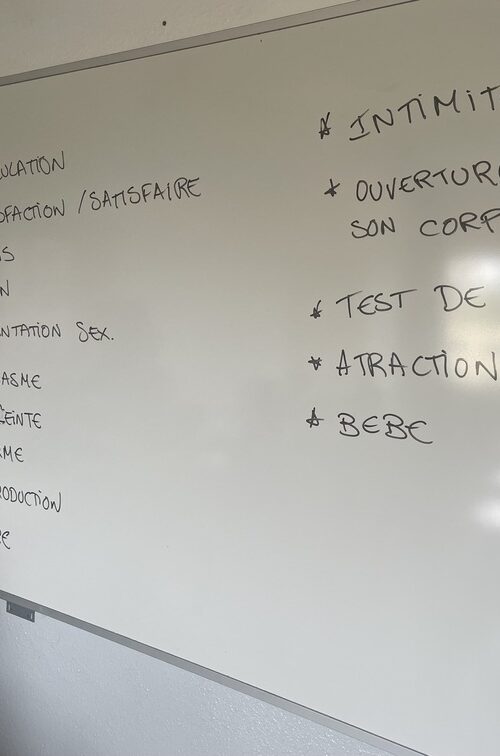 ULATION
SFACTION / SATISFAIRE
S
N
NTATION SEX.
ASME
CEINTE
ME
RODUCTION
E
* INTIMIT
* OUVERTUR
SON CORP
* TEST DE
* ATRACTION
* BEBE